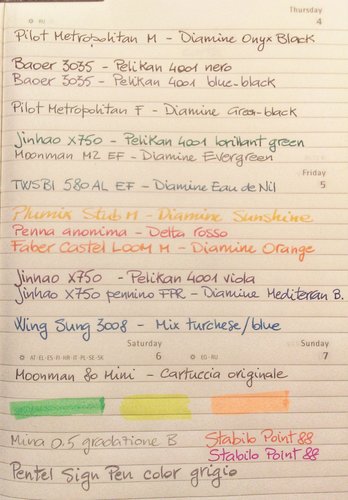 Thursday
4
Pilot Metropolitan M - Diamine Onyx Black
Baoer 3035 - Pelikan 4001 nero
Baoer 3035 - Pelikan 4001 blue-black
Pilot Metropolitan F - Diamine Green-black
Jinhao X750 - Pelikan 4001 brillant green
Moonman M2 EF - Diamine Evergreen
Friday
5
TWSBI 580 AL EF - Diamine Eau de Nil
Plumix Stub M - Diamine Sunshine
Penna anonima - Delta rosso
Faber Castel LOOM M - Diamine Orange
Jinhao X750 - Pelikan 4001 viola
Jinhao X750 pennino FPR - Diamine Mediteran B.
Wing Sung 3008 - Mix turchese/blue
Saturday
Sunday
AT-EL-ES-FI-HR-IT-PL-SE-SK
6
EG-RU
7
Moonman 80 Mini - Cartuccia originale
Mina 0.5 gradazione B
Stabilo Point 88
Stabilo Point 88
Pentel Sign Pen color grigio